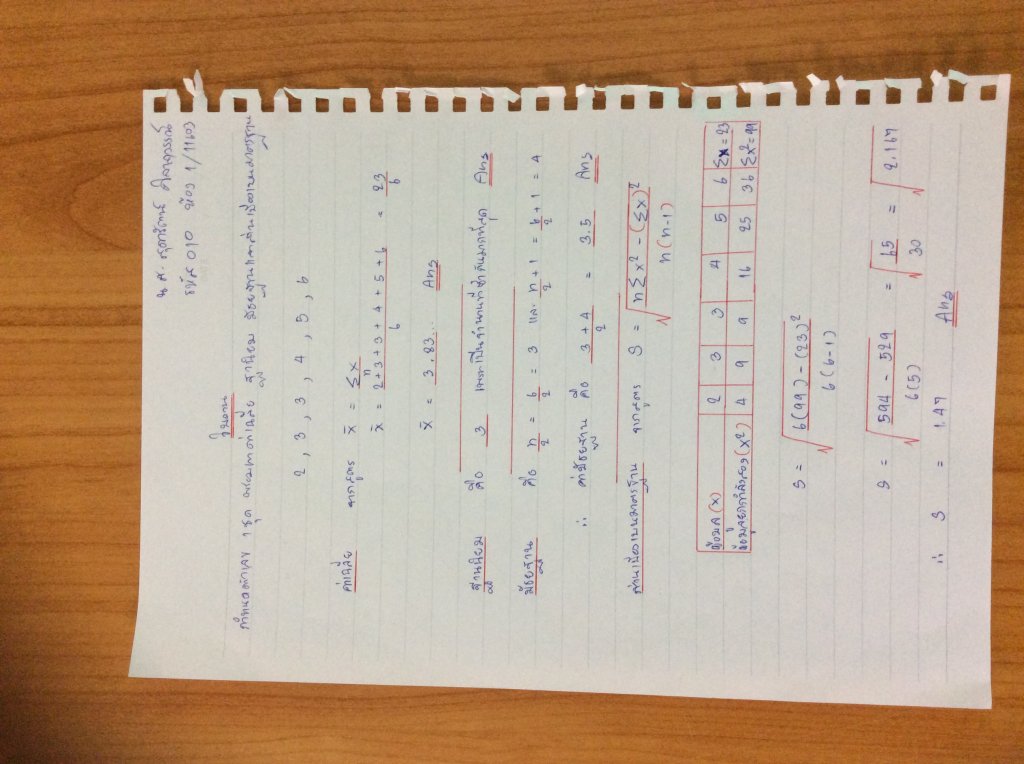 น.ส. สุดารัตน์
รหัส 010 ห้อง 1/11603
ใบงาน
กำหนดตัวเลข 1 ชุด จงหาค่าเฉลี่ย ฐานนิยม มัธยฐานและส่วนเบี่ยงเบนมาตรฐาน
2 , 3 , 3 , 4 , 5 , 6
ค่าเฉลี่ย จากสูตร x̄ = Σx/n
x̄ = (2+3+3+4+5+6)/6 = 23/6
x̄ = 3.83... Ans
ฐานนิยม คือ 3 เพราะเป็นจำนวนที่ซ้ำกันมากที่สุด Ans
มัธยฐาน คือ n/2 = 6/2 = 3 และ n/2 + 1 = 6/2 + 1 = 4
∴ ค่ามัธยฐาน คือ (3+4)/2 = 3.5 Ans
ส่วนเบี่ยงเบนมาตรฐาน จากสูตร S = √((nΣx² - (Σx)²)/(n(n-1)))
ข้อมูล (x) 2 3 3 4 5 6 Σx = 23
ข้อมูลยกกำลังสอง (x²) 4 9 9 16 25 36 Σx² = 99
S = √((6(99) - (23)²)/(6(6-1)))
S = √((594 - 529)/(6(5))) = √(65/30) = √2.167
∴ S = 1.47 Ans